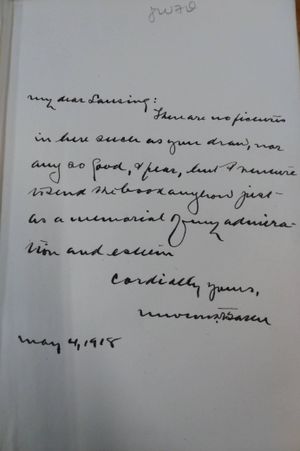 My dear Lansing:
There are no pictures
in here such as you draw, nor
any so good, I fear, but I venture
to send the book anyhow just
as a memorial of my admira-
tion and esteem
Cordially yours,
May 4, 1918